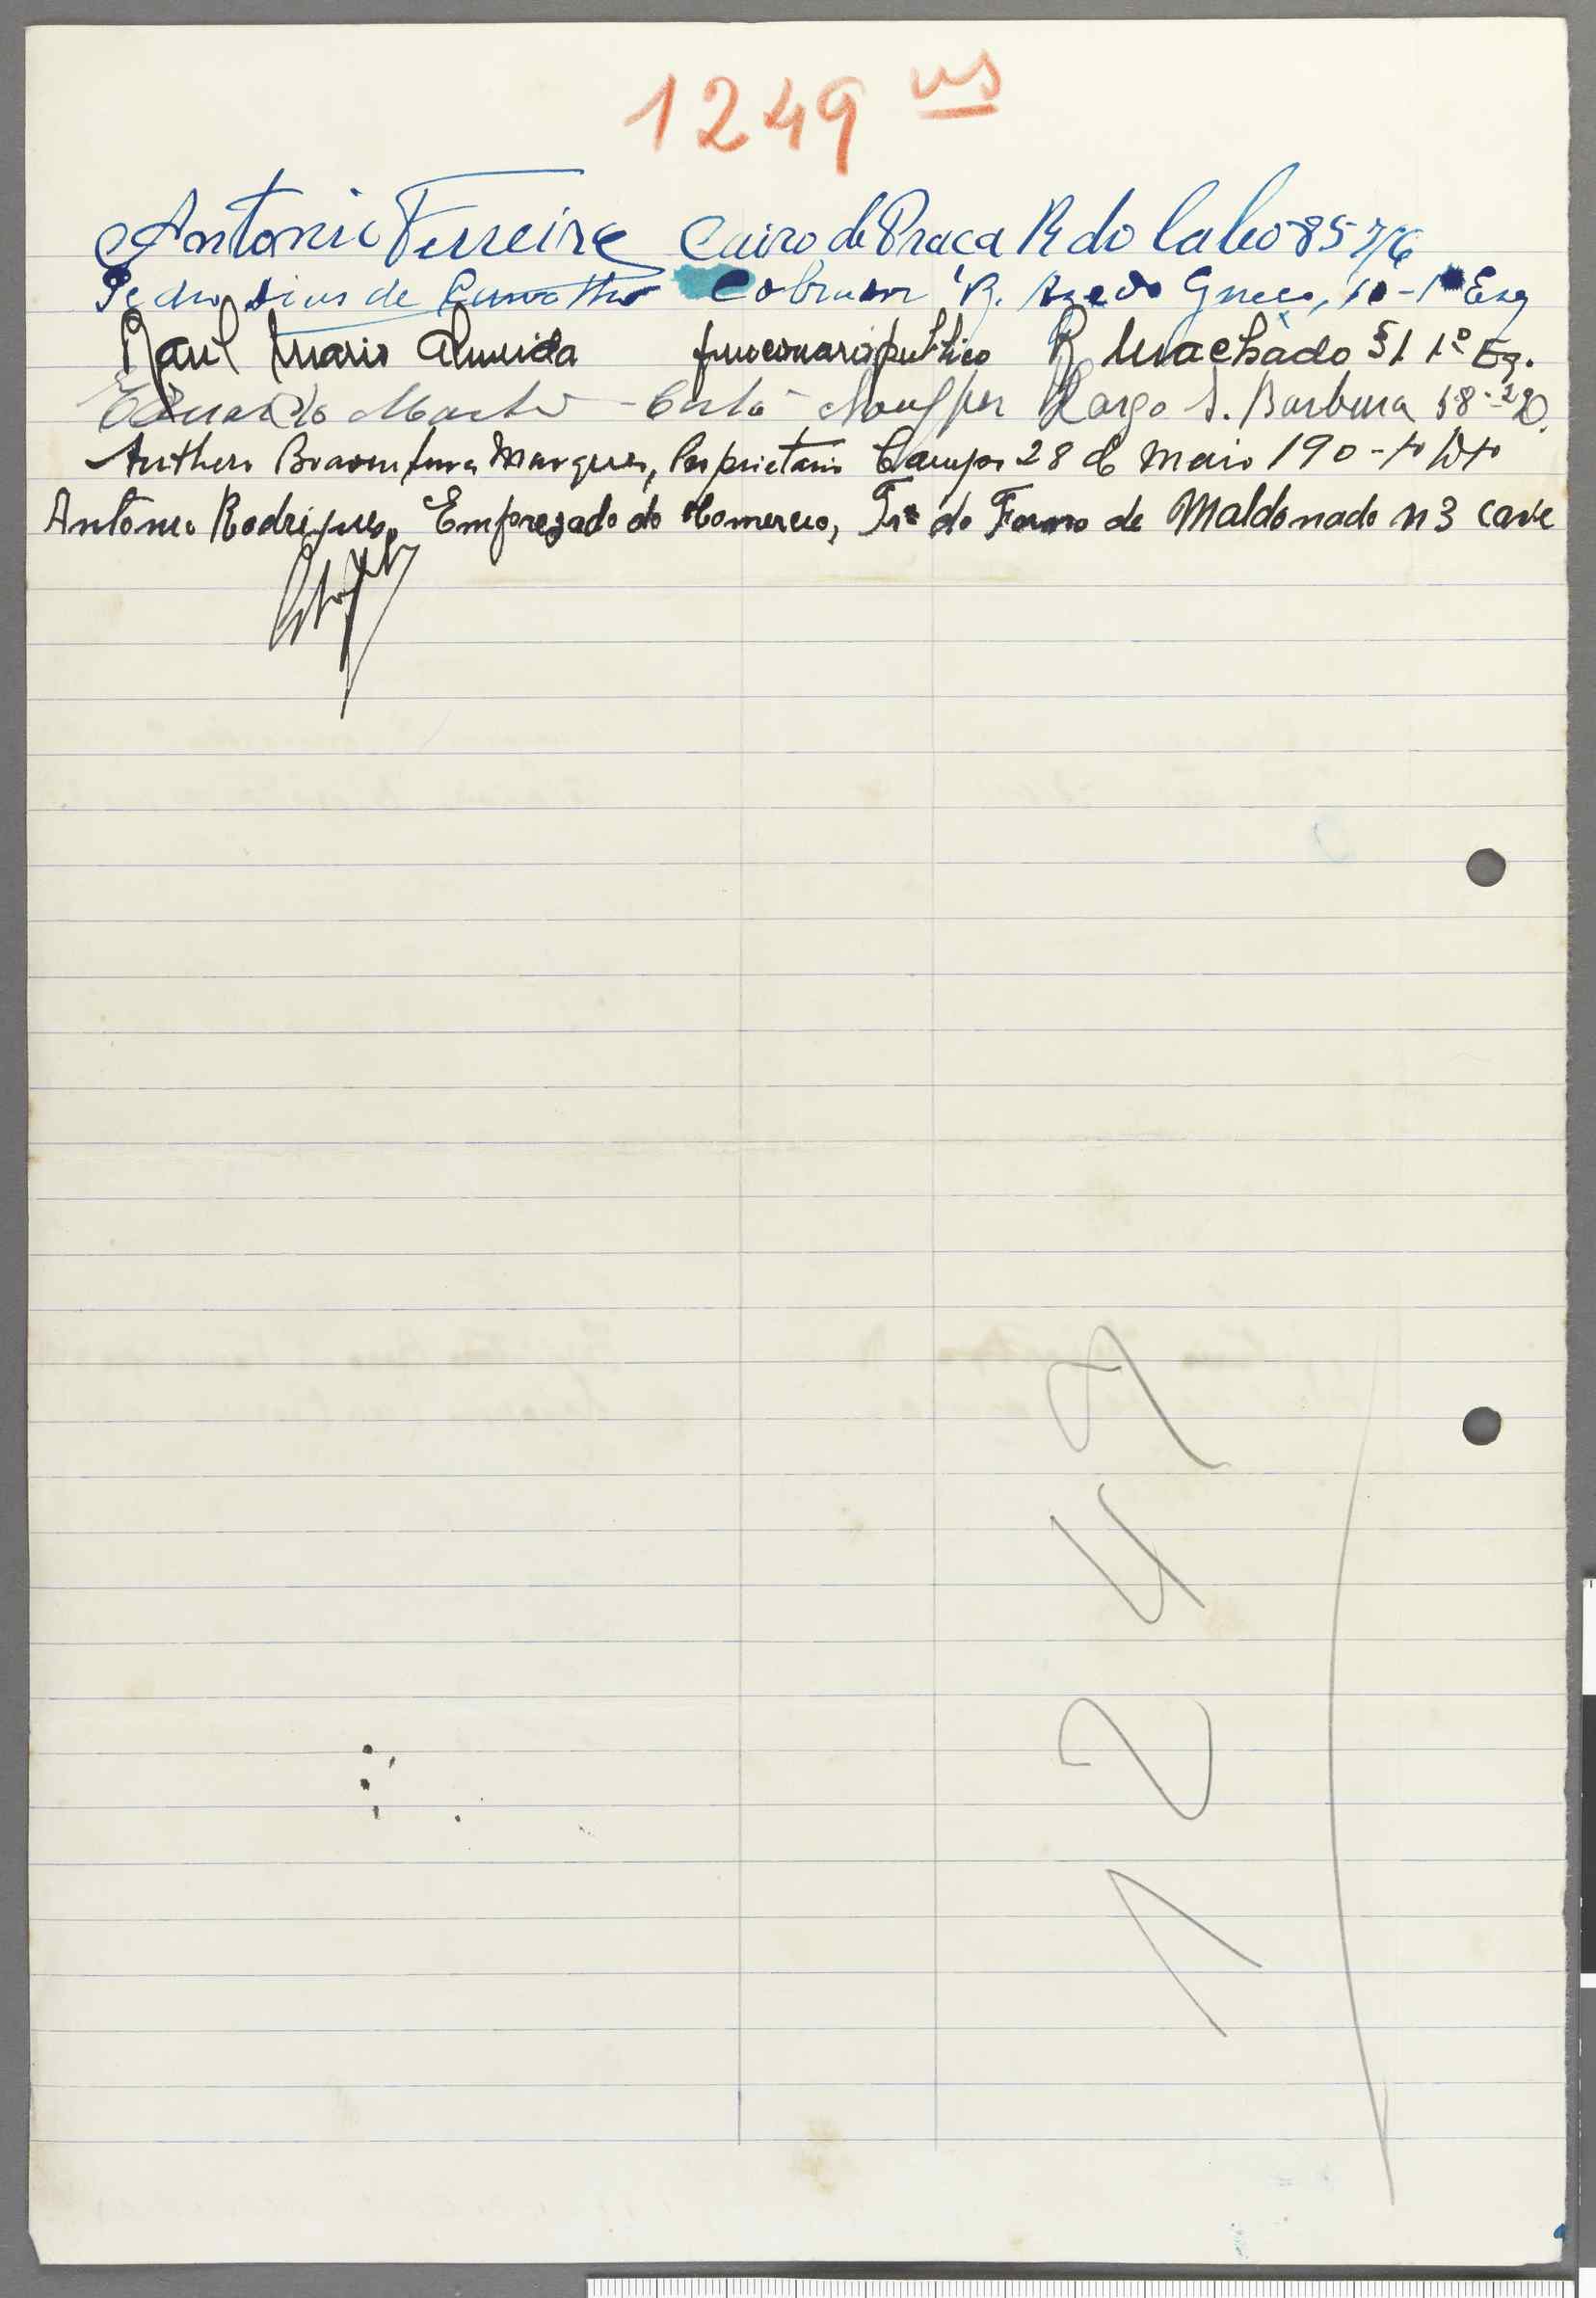 1249 vs
Antonio Ferreira Cairo de Praca R do Cabo 85 r/c
Pedro Dias de Carvalho Cobrador R. Azedo Gneco, 10 - 1º Esq
Raul Mario Almeida funcionario publico R Machado 51 1º Eq.
Eduardo - Chauffer Largo S. Barbura 58-2º D.
Anthero Boaventura Marques, Proprietario Campo 28 de Maio 190 -
Antonio Rodrigues, Empregado do Comercio, Trª do Forno de Maldonado n 3 cave
1247